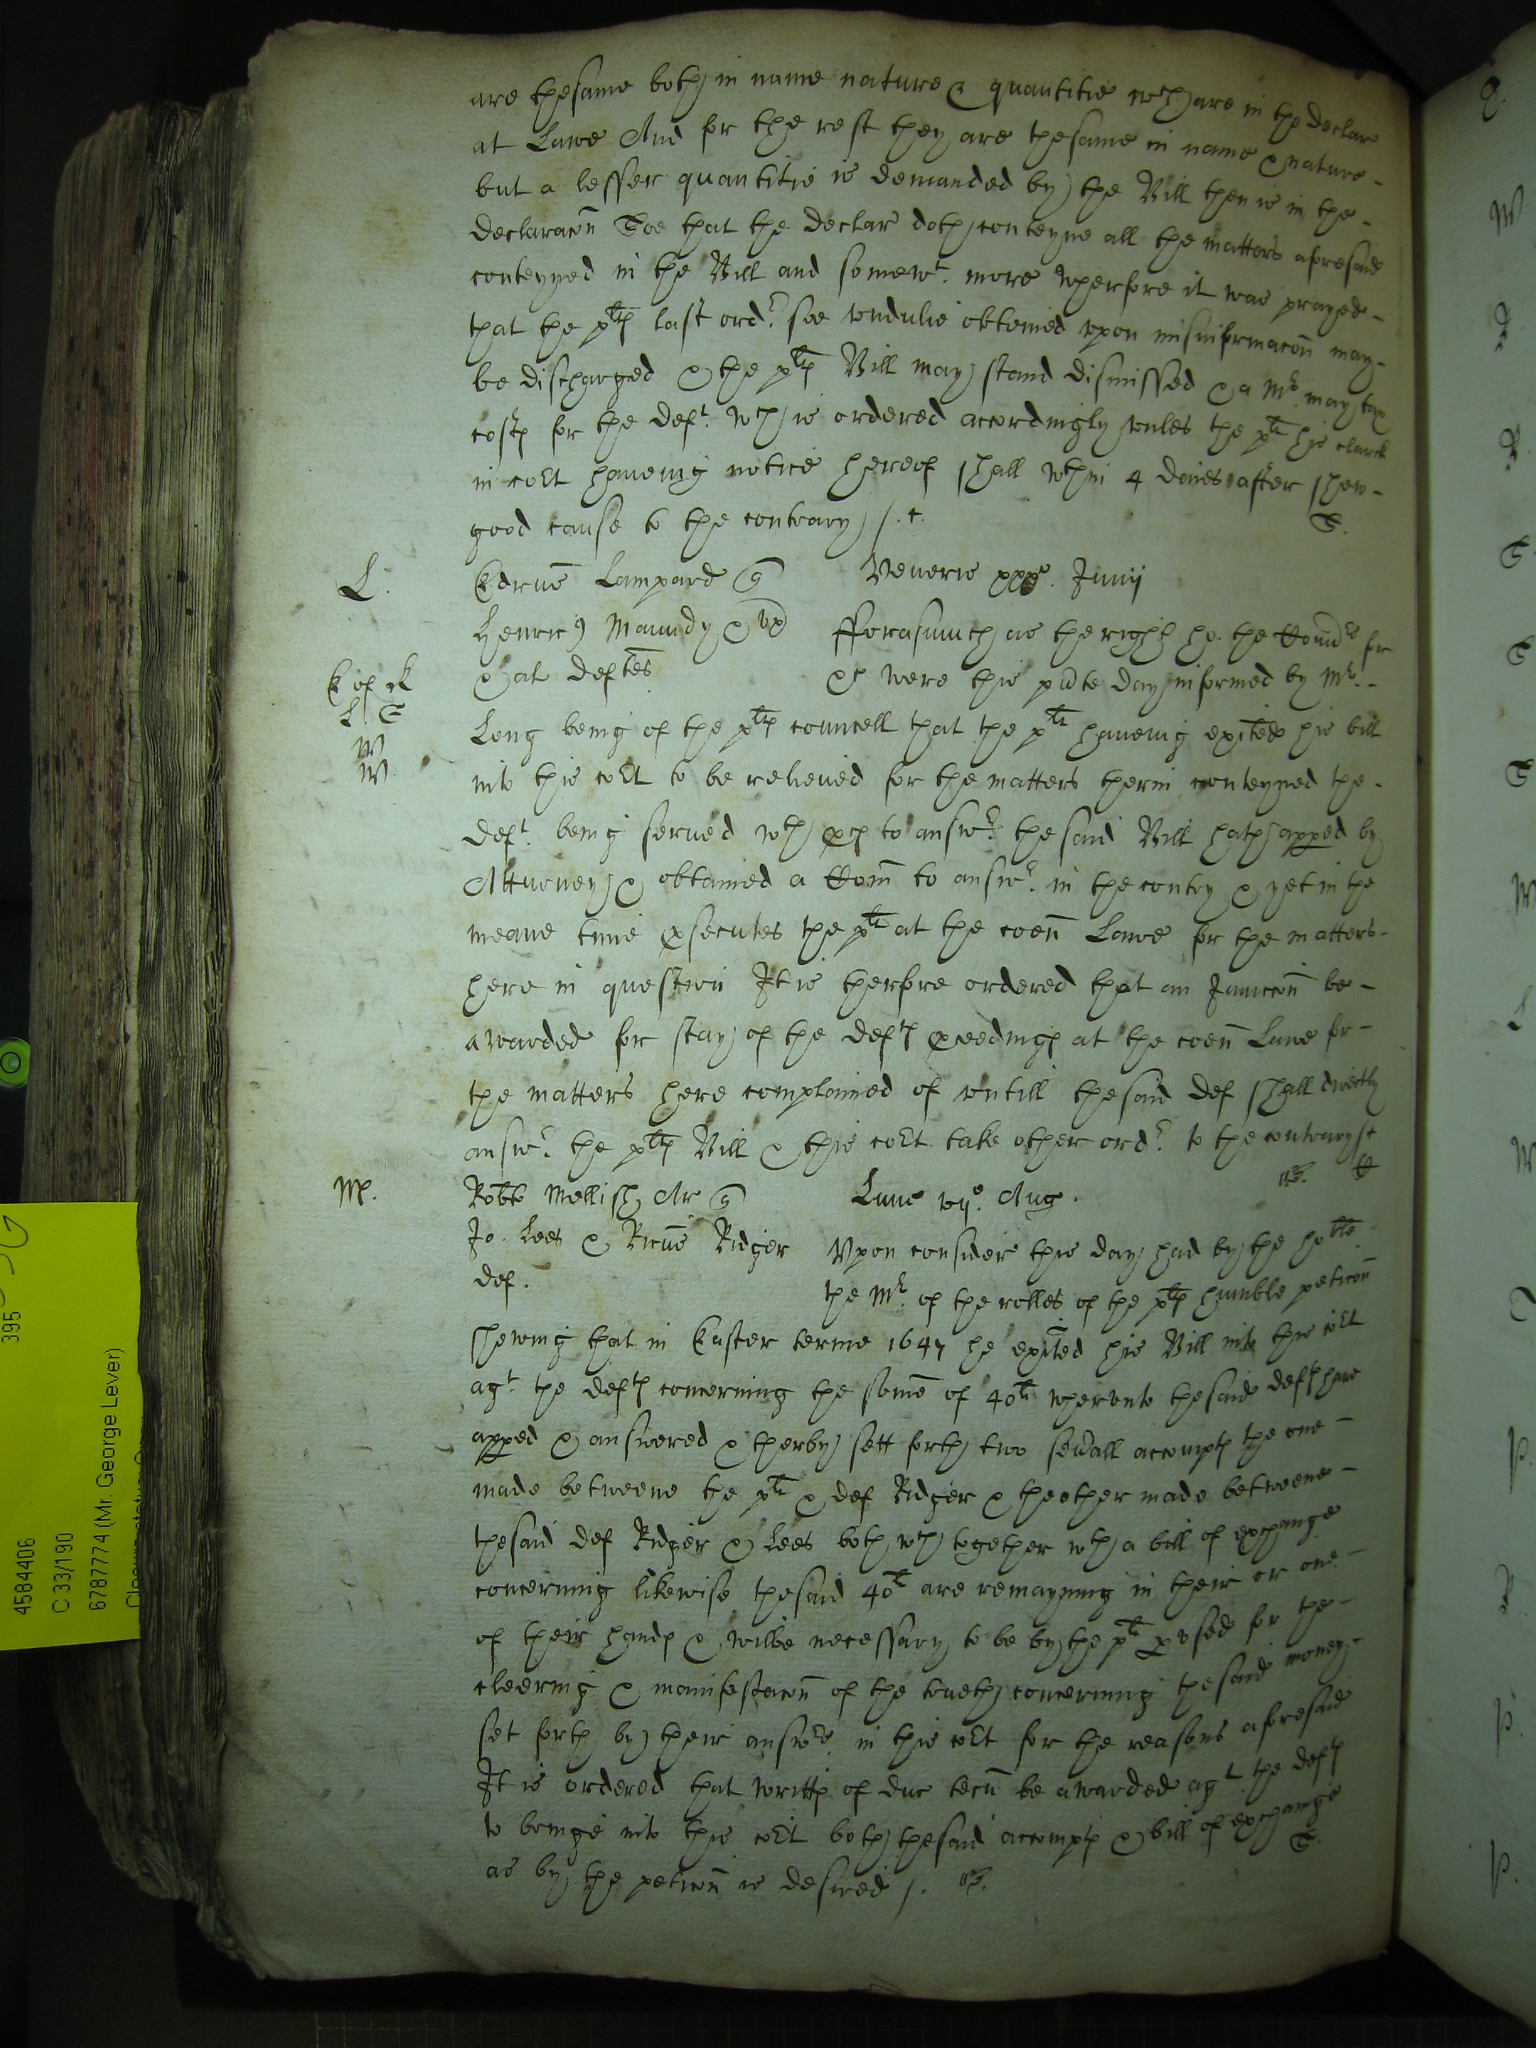 are thesame both in name nature & quantitie wch are in the declar
at Lawe And for the rest they are thesame in name & nature
but a lesser quantitie is demanded by the Bill then is in the
declaracon Soe that the declar doth conteyne all the matters aforesaid
conteyned in the Bill and somewt. more Wherfore it was prayed
that the plts last ordr. soe vndulie obteined vpon misinformacon may
be discharged & the plts Bill may stand dismissed & a Mr. may tax
costs for the deft. wch is ordered accordingly vnles the plt his clarck
in cort haveing notice hereof shall wthin 4 daies after shew
good cause to the contrary /. t.
S.
L.
Edrus Lampard q
Veneris xxxo. Junij
Henric9 Maundy & vx
& al deftes
Forasmuch as the right ho. the Comrs for
&c were this pnte day informed by Mr.
K of K
L. S
W
W
Long being of the plts councell that the plt haveing exited his bill
into this cort to be releived for the matters therin conteyned the
deft. being served wth pces to answr. the said Bill hath apped by
Atturney & obtained a Com to answr. in the contry & yet in the
meane time psecutes the plt at the coen Lawe for the matters
here in question It is therfore ordered that an Iniuccon be
awarded for stay of the defts pceedings at the coen Lawe for
the matters here complained of vntill thesaid def shall directly
answr. the plts Bill & this cort take other ordr. to the contrary /t
M.
Robte Mellish Ar q
Lune vijo. Aug.
Jo. Lees & Ricus Ridger
def.
Vpon consider this day had by the hoble
the Mr. of the rolles of the plts humble peticon
shewing that in Easter terme 1647 he exited his Bill into this cort
agt. the defts concerning the some of 40li wherevnto thesaid defts have
apped & answered & therby sett forth two sevall accompts the one
made betweene the plt & def Ridger & theother made betweene
thesaid def Ridger & Lees both wch together wth a bill of exchange
concerning likewise thesaid 40li are remayning in their or one
of their hands & wilbe necessary to be by the plt pvsed for the
cleering & manifestacon of the trueth concerning thesaid money
set forth by their answrs. in this cort for the reasons aforesaid
It is ordered that writts of duc tecu be awarded agt. the defts
to bringe into this cort both thesaid accompts & bill of exchange
as by the peticon is desired /.
S.
395
4584406
C 33/190
6787774 (Mr. George Lever)